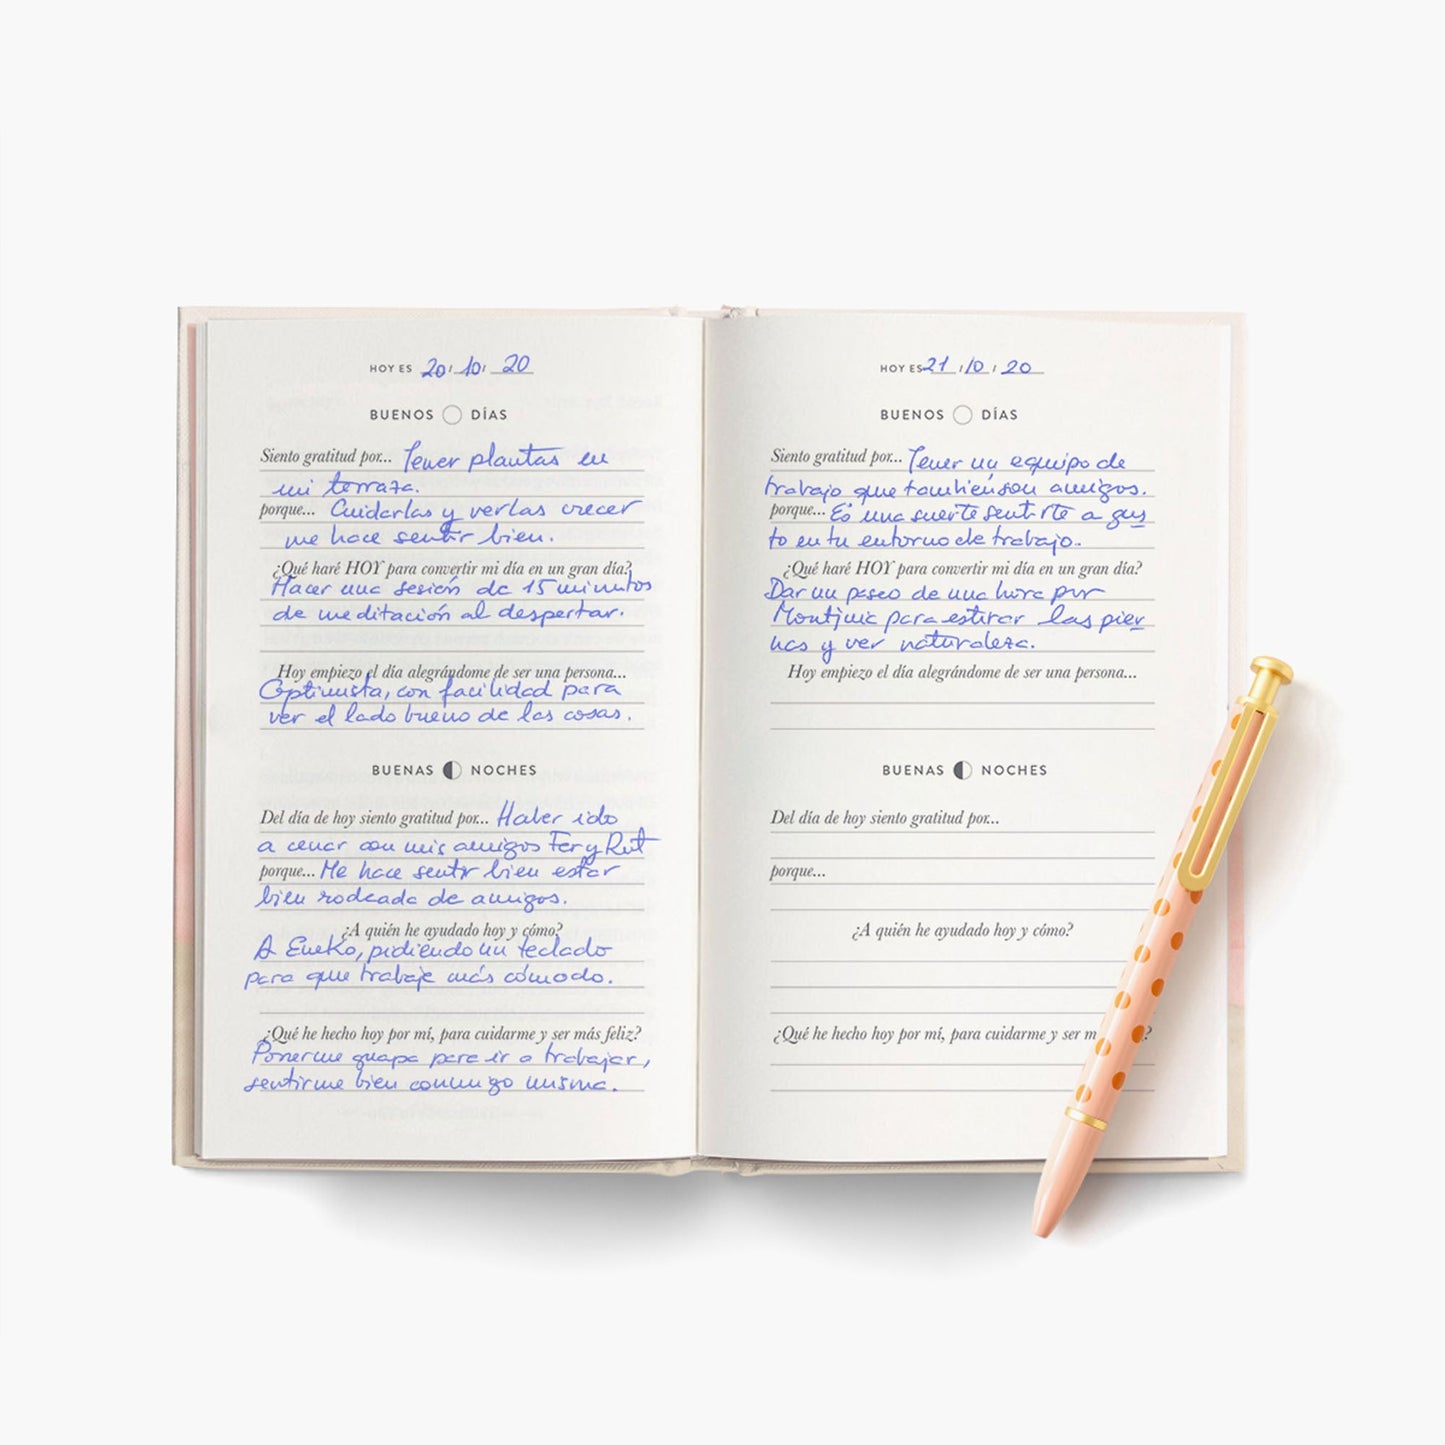 HOY ES 20 / 10 / 20
BUENOS DÍAS
Siento gratitud por... Tener plantas en
mi terraza.
porque... Cuidarlas y verlas crecer
me hace sentir bien.
¿Qué haré HOY para convertir mi día en un gran día?
Hacer una sesión de 15 minutos
de meditación al despertar.
Hoy empiezo el día alegrándome de ser una persona...
Optimista, con facilidad para
ver el lado bueno de las cosas.
BUENAS NOCHES
Del día de hoy siento gratitud por... Haber ido
a cenar con mis amigos Fer y Rut
porque... Me hace sentir bien estar
bien rodeada de amigos.
¿A quién he ayudado hoy y cómo?
A Eneko, pidiendo un teclado
para que trabaje más cómodo.
¿Qué he hecho hoy por mí, para cuidarme y ser más feliz?
Ponerme guapa para ir a trabajar,
sentirme bien conmigo misma.
HOY ES 21 / 10 / 20
BUENOS DÍAS
Siento gratitud por... Tener un equipo de
trabajo que también son amigos.
porque... Es una suerte sentirte a gus
to en tu entorno de trabajo.
¿Qué haré HOY para convertir mi día en un gran día?
Dar un paseo de una hora por
Montjuic para estirar las pier
nas y ver naturaleza.
Hoy empiezo el día alegrándome de ser una persona...
BUENAS NOCHES
Del día de hoy siento gratitud por...
porque...
¿A quién he ayudado hoy y cómo?
¿Qué he hecho hoy por mí, para cuidarme y ser m ?